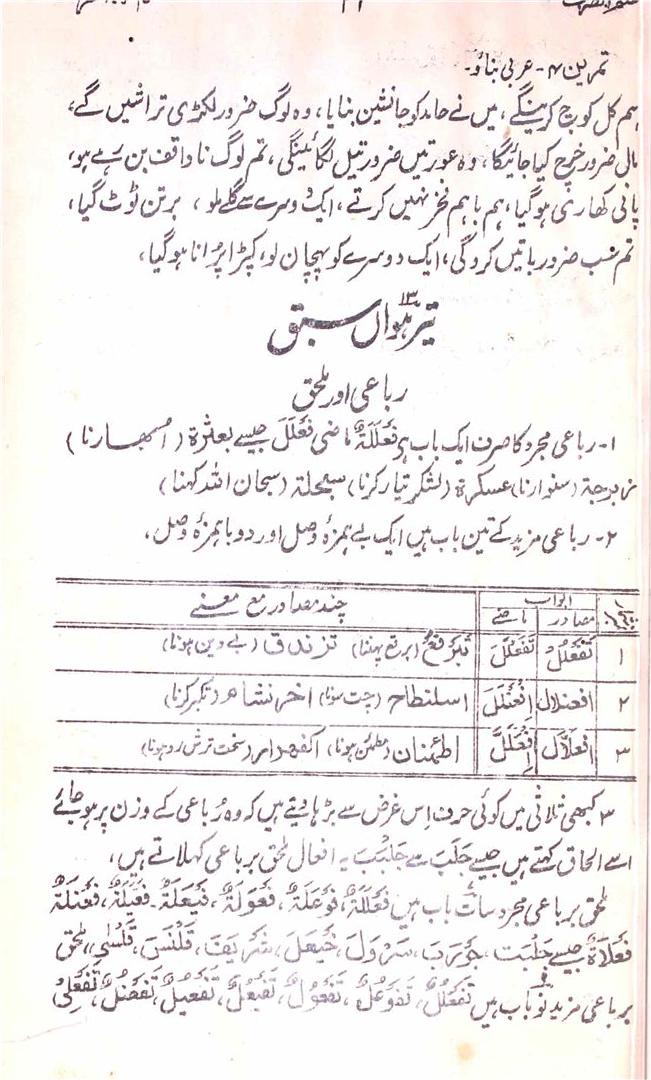 ۳۱
تمرین ۴۔ عربی بناؤ۔
ہم کل کوچ کرینگے، میں نے حامد کو جانشین بنایا، وہ لوگ ضرور لکڑی تراشیں گے،
مالی ضرور خرچ کیا جائیگا، وہ عورتیں ضرور تیل لگائینگی، تم لوگ ناواقف بن رہے ہو،
پانی کھاری ہوگیا، ہم باہم فخر نہیں کرتے، ایک دوسرے سے گلے ملو، برتن ٹوٹ گیا،
تم سب ضرور باتیں کروگی، ایک دوسرے کو پہچان لو، کپڑا پرانا ہوگیا،
تیرہواں ۱۳ سبق
رباعی اور ملحق
۱۔ رباعی مجرد کا صرف ایک باب ہے فَعْلَلَةٌ ماضی فَعْلَلَ جیسے بعثرة (ابھارنا)
زبرجة (سنوارنا) عسکرة (لشکر تیار کرنا) سبحلة (سبحان اللہ کہنا)
۲۔ رباعی مزید کے تین باب ہیں ایک بے ہمزۂ وصل اور دو با ہمزۂ وصل،
ابواب
مصادر ماضے چند مصادر مع معنے
۱ تَفَعْلُلٌ تَفَعْلَلَ تَبَرْقُعٌ (برقع پہننا) تزندق (بے دین ہونا)
۲ افعنلال اِفْعَنْلَلَ اسلنطاح (چت سونا) اخرنشام (تکبر کرنا)
۳ افعلّال اِفْعَلَلَّ اطمئنان (مطمئن ہونا) اکفہرار (سخت ترش رو ہونا)
۳ کبھی ثلاثی میں کوئی حرف اِس غرض سے بڑھا دیتے ہیں کہ وہ رُباعی کے وزن پر ہو جائے
اسے الحاق کہتے ہیں جیسے جَلَبَ سے جَلْبَبَ یہ افعال ملحق برباعی کہلاتے ہیں،
ملحق برباعی مجرد سات باب ہیں فَعْلَلَةٌ، فَوْعَلَةٌ، فَعْوَلَةٌ، فَيْعَلَةٌ، فَعْيَلَةٌ، فَعْنَلَةٌ
فَعْلَاةٌ جیسے جَلْبَبَ، جَوْرَبَ، سَرْوَلَ، خَيْعَلَ، شَرْيَفَ، قَلْنَسَ، قَلْسٰی، ملحق
برباعی مزید نو باب ہیں تَفَعْلُلٌ، تَفَوْعُلٌ، تَفَعْوُلٌ، تَفَيْعُلٌ، تَفَعْيُلٌ، تَفَعْنُلٌ، تَفَعْلِی